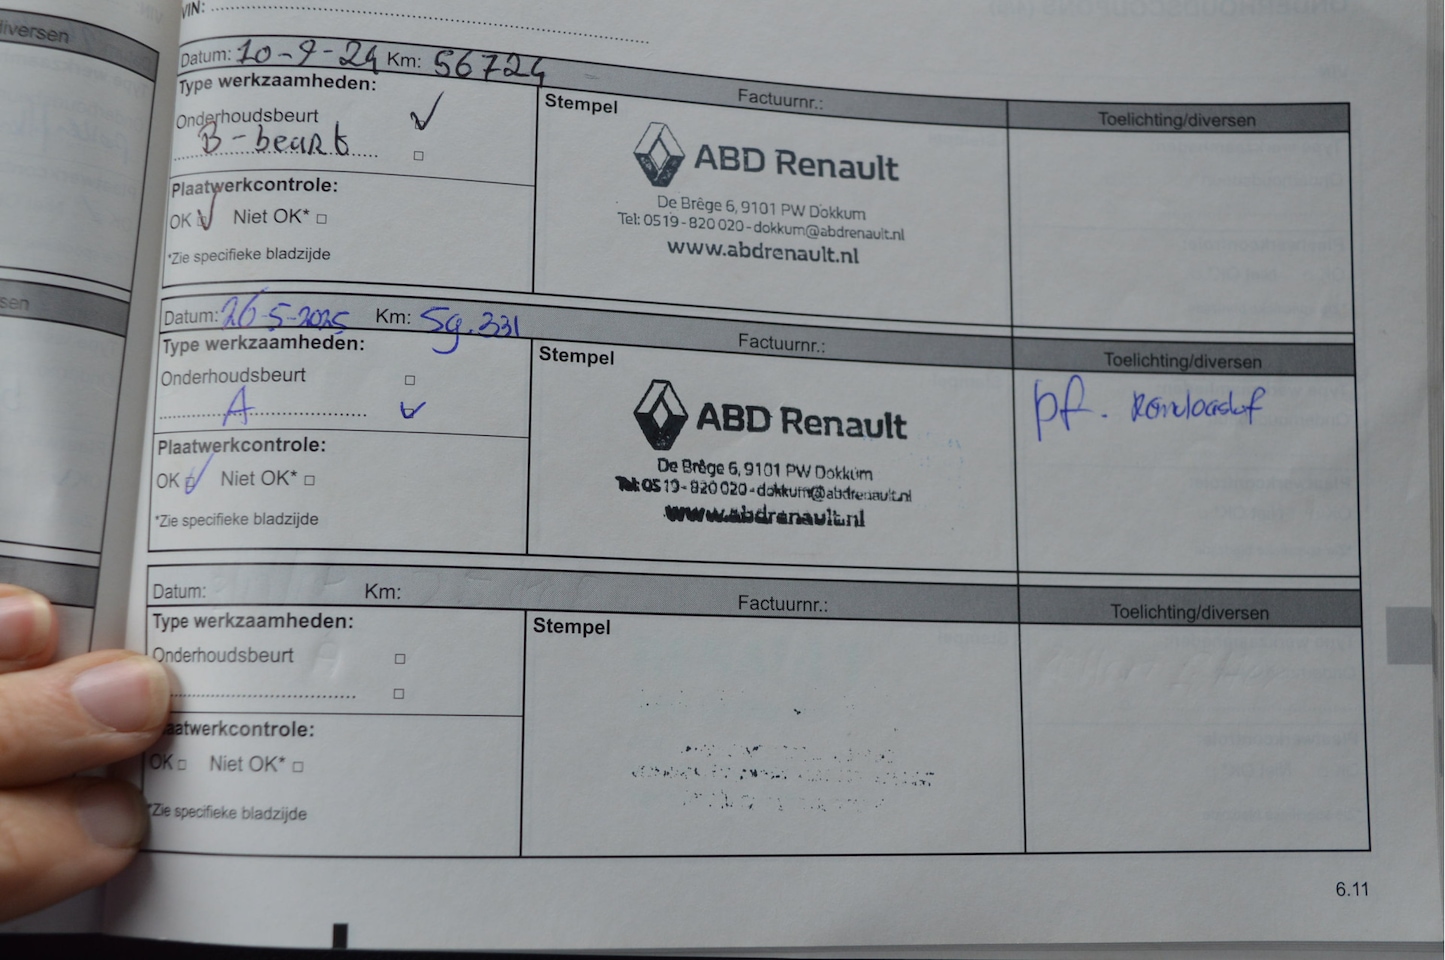 diversen
VIN:
Datum: 10-9-24 Km: 56724
Factuurnr.:
Toelichting/diversen
Type werkzaamheden:
Onderhoudsbeurt
B-beurt
Plaatwerkcontrole:
OK Niet OK*
*Zie specifieke bladzijde
Stempel
ABD Renault
De Brêge 6, 9101 PW Dokkum
Tel: 0519-820 020 - dokkum@abdrenault.nl
www.abdrenault.nl
sen
Datum: 26-5-2025 Km: 59.331
Factuurnr.:
Toelichting/diversen
Type werkzaamheden:
Onderhoudsbeurt
A
Plaatwerkcontrole:
OK Niet OK*
*Zie specifieke bladzijde
Stempel
ABD Renault
De Brêge 6, 9101 PW Dokkum
Tel: 0519-820 020 - dokkum@abdrenault.nl
www.abdrenault.nl
pf. remvloeistof
Datum: Km:
Factuurnr.:
Toelichting/diversen
Type werkzaamheden:
Onderhoudsbeurt
aatwerkcontrole:
OK Niet OK*
*Zie specifieke bladzijde
Stempel
6.11